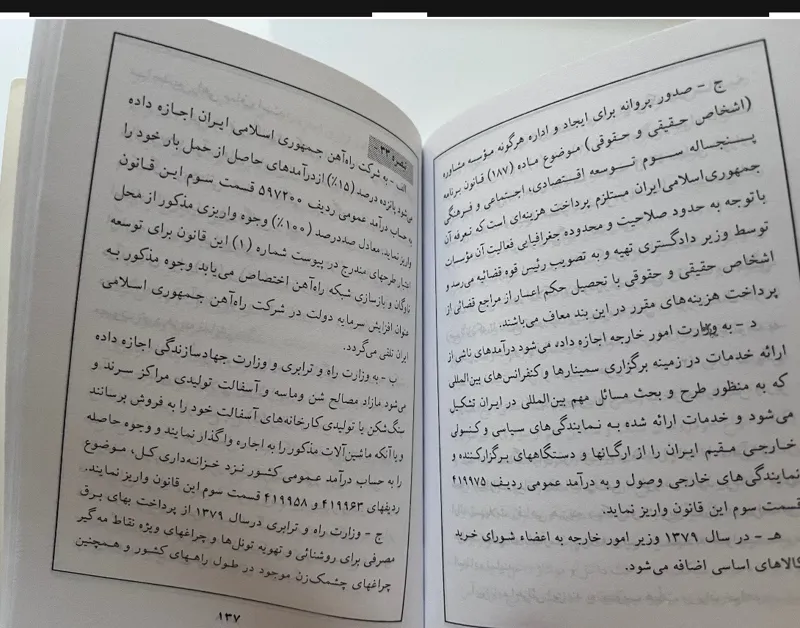 ج - صدور پروانه برای ایجاد و اداره هرگونه مؤسسه مشاوره
(اشخاص حقیقی و حقوقی) موضوع ماده (۱۸۷) قانون برنامه
پنجساله سوم توسعه اقتصادی، اجتماعی و فرهنگی
جمهوری‌اسلامی‌ایران مستلزم پرداخت هزینه‌ای است که تعرفه آن
باتوجه به حدود صلاحیت و محدوده جغرافیایی فعالیت آن مؤسسات
توسط وزیر دادگستری تهیه و به تصویب رئیس قوه قضائیه می‌رسد و
اشخاص حقیقی و حقوقی با تحصیل حکم اعسار از مراجع قضائی از
پرداخت هزینه‌های مقرر در این بند معاف می‌باشند.
د - به وزارت امور خارجه اجازه داده می‌شود درآمدهای ناشی از
ارائه خدمات در زمینه برگزاری سمینارها و کنفرانس‌های بین‌المللی
که به منظور طرح و بحث مسائل مهم بین‌المللی در ایران تشکیل
می‌شود و خدمات ارائه شده به نمایندگی‌های سیاسی و کنسولی
خارجی مقیم ایران را از ارگانها و دستگاههای برگزارکننده و
نمایندگی‌های خارجی وصول و به درآمد عمومی ردیف ۴۱۹۹۷۵
قسمت سوم این قانون واریز نماید.
هـ - در سال ۱۳۷۹ وزیر امور خارجه به اعضاء شورای خرید
کالاهای اساسی اضافه می‌شود.
تبصره ۳۳ -
الف - به شرکت راه‌آهن جمهوری اسلامی ایران اجازه داده
می‌شود پانزده درصد (۱۵٪) ازدرآمدهای حاصل از حمل بار خود را
به حساب درآمد عمومی ردیف ۵۹۷۲۰۰ قسمت سوم این قانون
واریز نماید. معادل صددرصد (۱۰۰٪) وجوه واریزی مذکور از محل
اعتبار طرحهای مندرج در پیوست شماره (۱) این قانون برای توسعه
ناوگان و بازسازی شبکه راه‌آهن اختصاص می‌یابد وجوه مذکور به
عنوان افزایش سرمایه دولت در شرکت راه‌آهن جمهوری اسلامی
ایران تلقی می‌گردد.
ب - به وزارت راه و ترابری و وزارت جهادسازندگی اجازه داده
می‌شود مازاد مصالح شن وماسه و آسفالت تولیدی مراکز سرند و
سنگ‌شکن یا تولیدی کارخانه‌های آسفالت خود را به فروش برسانند
و یا آنکه ماشین‌آلات مذکور را به اجاره واگذار نمایند و وجوه حاصله
را به حساب درآمد عمومی کشور نزد خزانه‌داری کل، موضوع
ردیفهای ۴۱۹۹۶۳ و ۴۱۹۹۵۸ قسمت سوم این قانون واریز نمایند.
ج - وزارت راه و ترابری درسال ۱۳۷۹ از پرداخت بهای برق
مصرفی برای روشنائی و تهویه تونل‌ها و چراغهای ویژه نقاط مه‌گیر
چراغهای چشمک‌زن موجود در طول راههای کشور و همچنین
۱۳۷